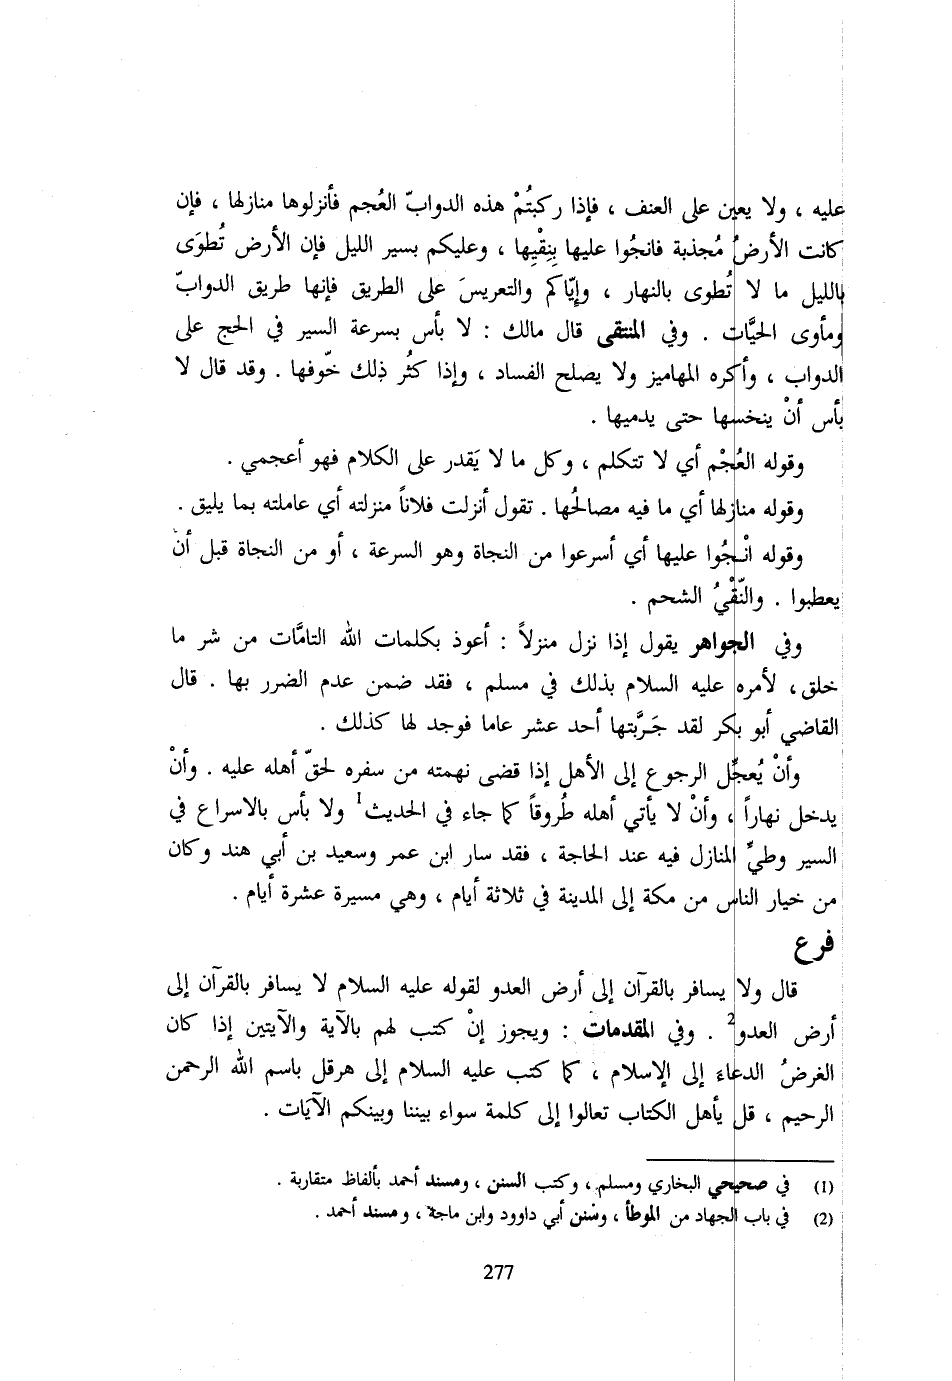 عليه ، ولا يعين على العنف ، فإذا ركبتُمْ هذه الدوابّ العُجم فأنزلوها منازلها ، فإن
كانت الأرضُ مُجدبة فانجُوا عليها بِنِقْيِها ، وعليكم بسير الليل فإن الأرض تُطوَى
بالليل ما لا تُطوى بالنهار ، وإيّاكم والتعريسَ على الطريق فإنها طريق الدوابّ
ومأوى الحيَّات . وفي المنتقى قال مالك : لا بأس بسرعة السير في الحج على
الدواب ، وأكره المهاميز ولا يصلح الفساد ، وإذا كثُر ذلك خّوفها . وقد قال لا
بأس أنْ ينخسها حتى يدميها .
وقوله العُجْم أي لا تتكلم ، وكل ما لا يَقدر على الكلام فهو أعجمي .
وقوله منازلها أي ما فيه مصالحُها . تقول أنزلت فلاناً منزلته أي عاملته بما يليق .
وقوله انْجُوا عليها أي أسرعوا من النجاة وهو السرعة ، أو من النجاة قبل أنْ
يعطبوا . والنّقْيُ الشحم .
وفي الجواهر يقول إذا نزل منزلاً : أعوذ بكلمات الله التامَّات من شر ما
خلق ، لأمره عليه السلام بذلك في مسلم ، فقد ضمن عدم الضرر بها . قال
القاضي أبو بكر لقد جَرَّبتها أحد عشر عاما فوجد لها كذلك .
وأنْ يُعجِّل الرجوع إلى الأهل إذا قضى نهمته من سفره لحقّ أهله عليه . وأنْ
يدخل نهاراً ، وأنْ لا يأتي أهله طُروقاً كما جاء في الحديث1 ولا بأس بالاسراع في
السير وطيِّ المنازل فيه عند الحاجة ، فقد سار ابن عمر وسعيد بن أبي هند وكان
من خيار الناس من مكة إلى المدينة في ثلاثة أيام ، وهي مسيرة عشرة أيام .
فرع
قال ولا يسافر بالقرآن إلى أرض العدو لقوله عليه السلام لا يسافر بالقرآن إلى
أرض العدو2 . وفي المقدمات : ويجوز إنْ كتب لهم بالآية والآيتين إذا كان
الغرضُ الدعاءَ إلى الإسلام ، كما كتب عليه السلام إلى هرقل باسم الله الرحمن
الرحيم ، قل يأهل الكتاب تعالوا إلى كلمة سواء بيننا وبينكم الآيات .
(1) في صحيحي البخاري ومسلم ، وكتب السنن ، ومسند أحمد بألفاظ متقاربة .
(2) في باب الجهاد من الموطأ ، وسُنن أبي داوود وابن ماجة ، ومسند أحمد .
277